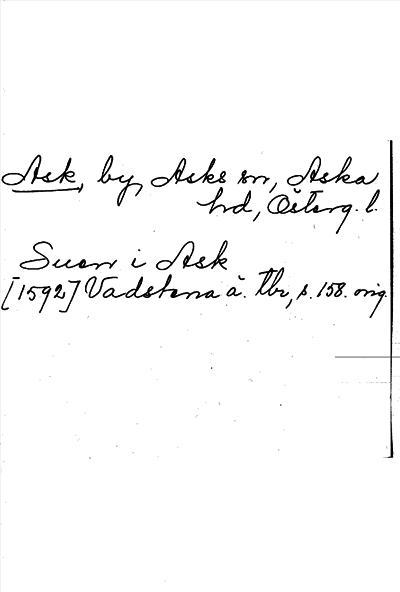 Ask, by, Asks sn, Aska
hd, Österg. l.
Suen i Ask
[1592] Vadstena ä. tbr, s. 158. orig.